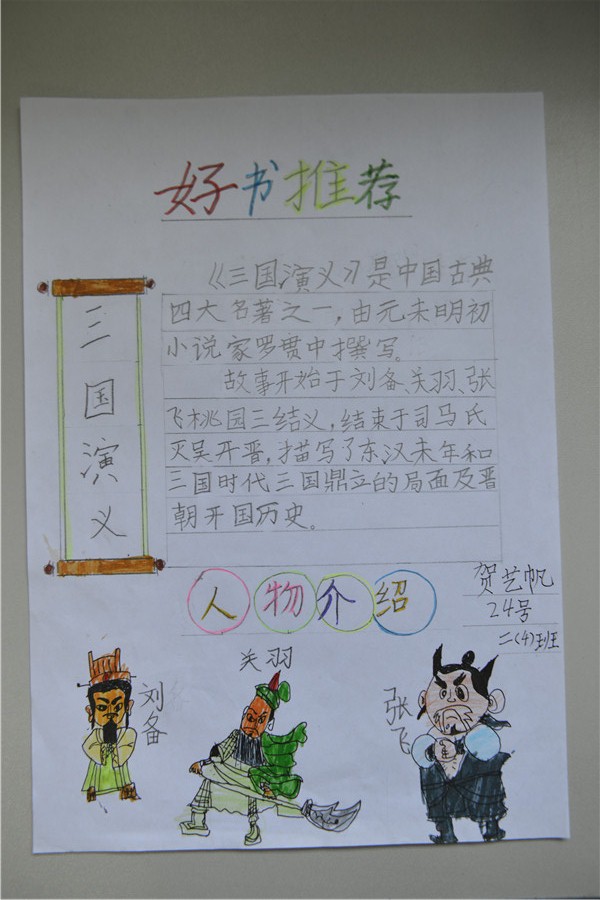 好书推荐
三国演义
《三国演义》是中国古典
四大名著之一，由元未明初
小说家罗贯中撰写。
故事开始于刘备、关羽、张
飞桃园三结义，结束于司马氏
灭吴开晋，描写了东汉未年和
三国时代三国鼎立的局面及晋
朝开国历史。
人物介绍
贺艺帆
24号
二(4)班
刘备
关羽
张飞